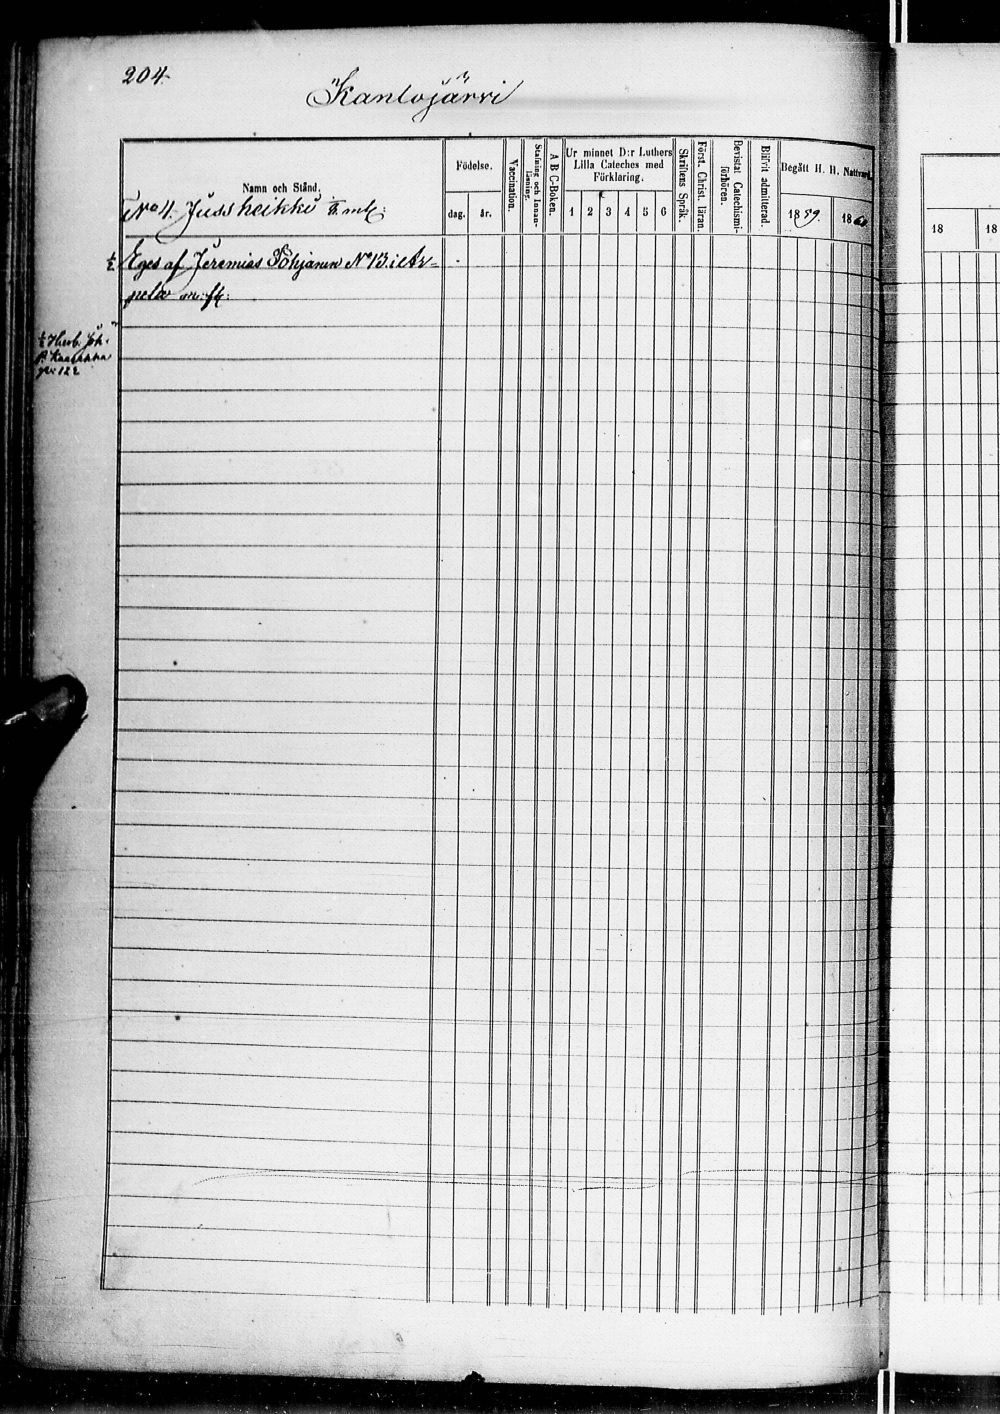 204.
Kantojärvi
Namn och Stånd.
Födelse.
dag.
år.
Vaccination.
Stafning och Innan-
läsning.
A B C-Boken.
Ur minnet D:r Luthers
Lilla Cateches med
Förklaring.
1 2 3 4 5 6
Skriftens Språk.
Först. Christ. läran.
Bevistat Catechismi-
förhören.
Blifvit admitterad.
Begått H. H. Nattvard
1859.
1860
18
18
No 4. Jussheikki mtl:
½ Eges af Jeremias Pohjanen No 13. i
m. fl:
½
122